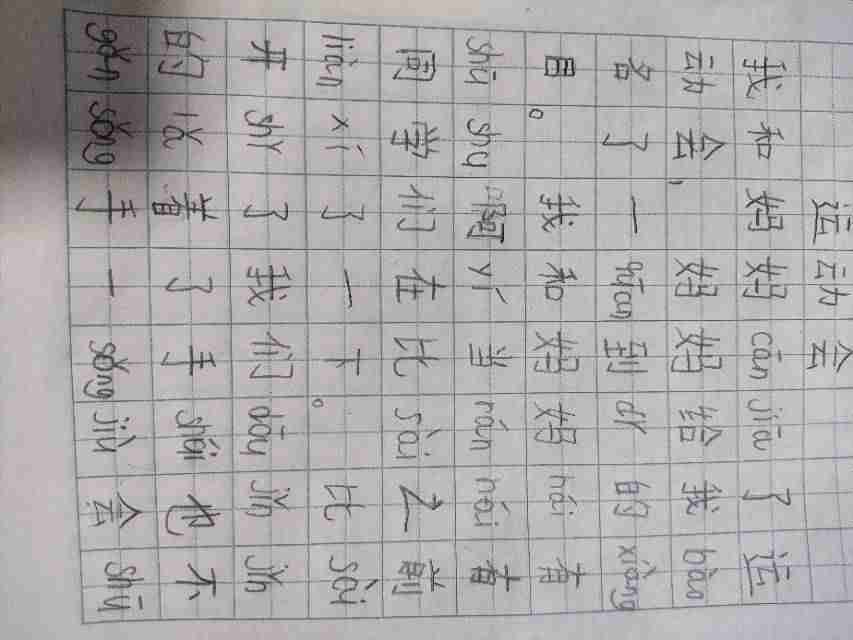 运动会
我和妈妈cān jiā了运
动会，妈妈给我bào
名了一qiān到dǐ的xiàng
目。我和妈妈hái有
shū shu阿yí当rán hái有
同学们在比sài之前
liàn xí了一下。比sài
开shǐ了我们dōu jǐn jǐn
的拉着了手shéi也不
gǎn sǒng手一sǒng jiù会shū